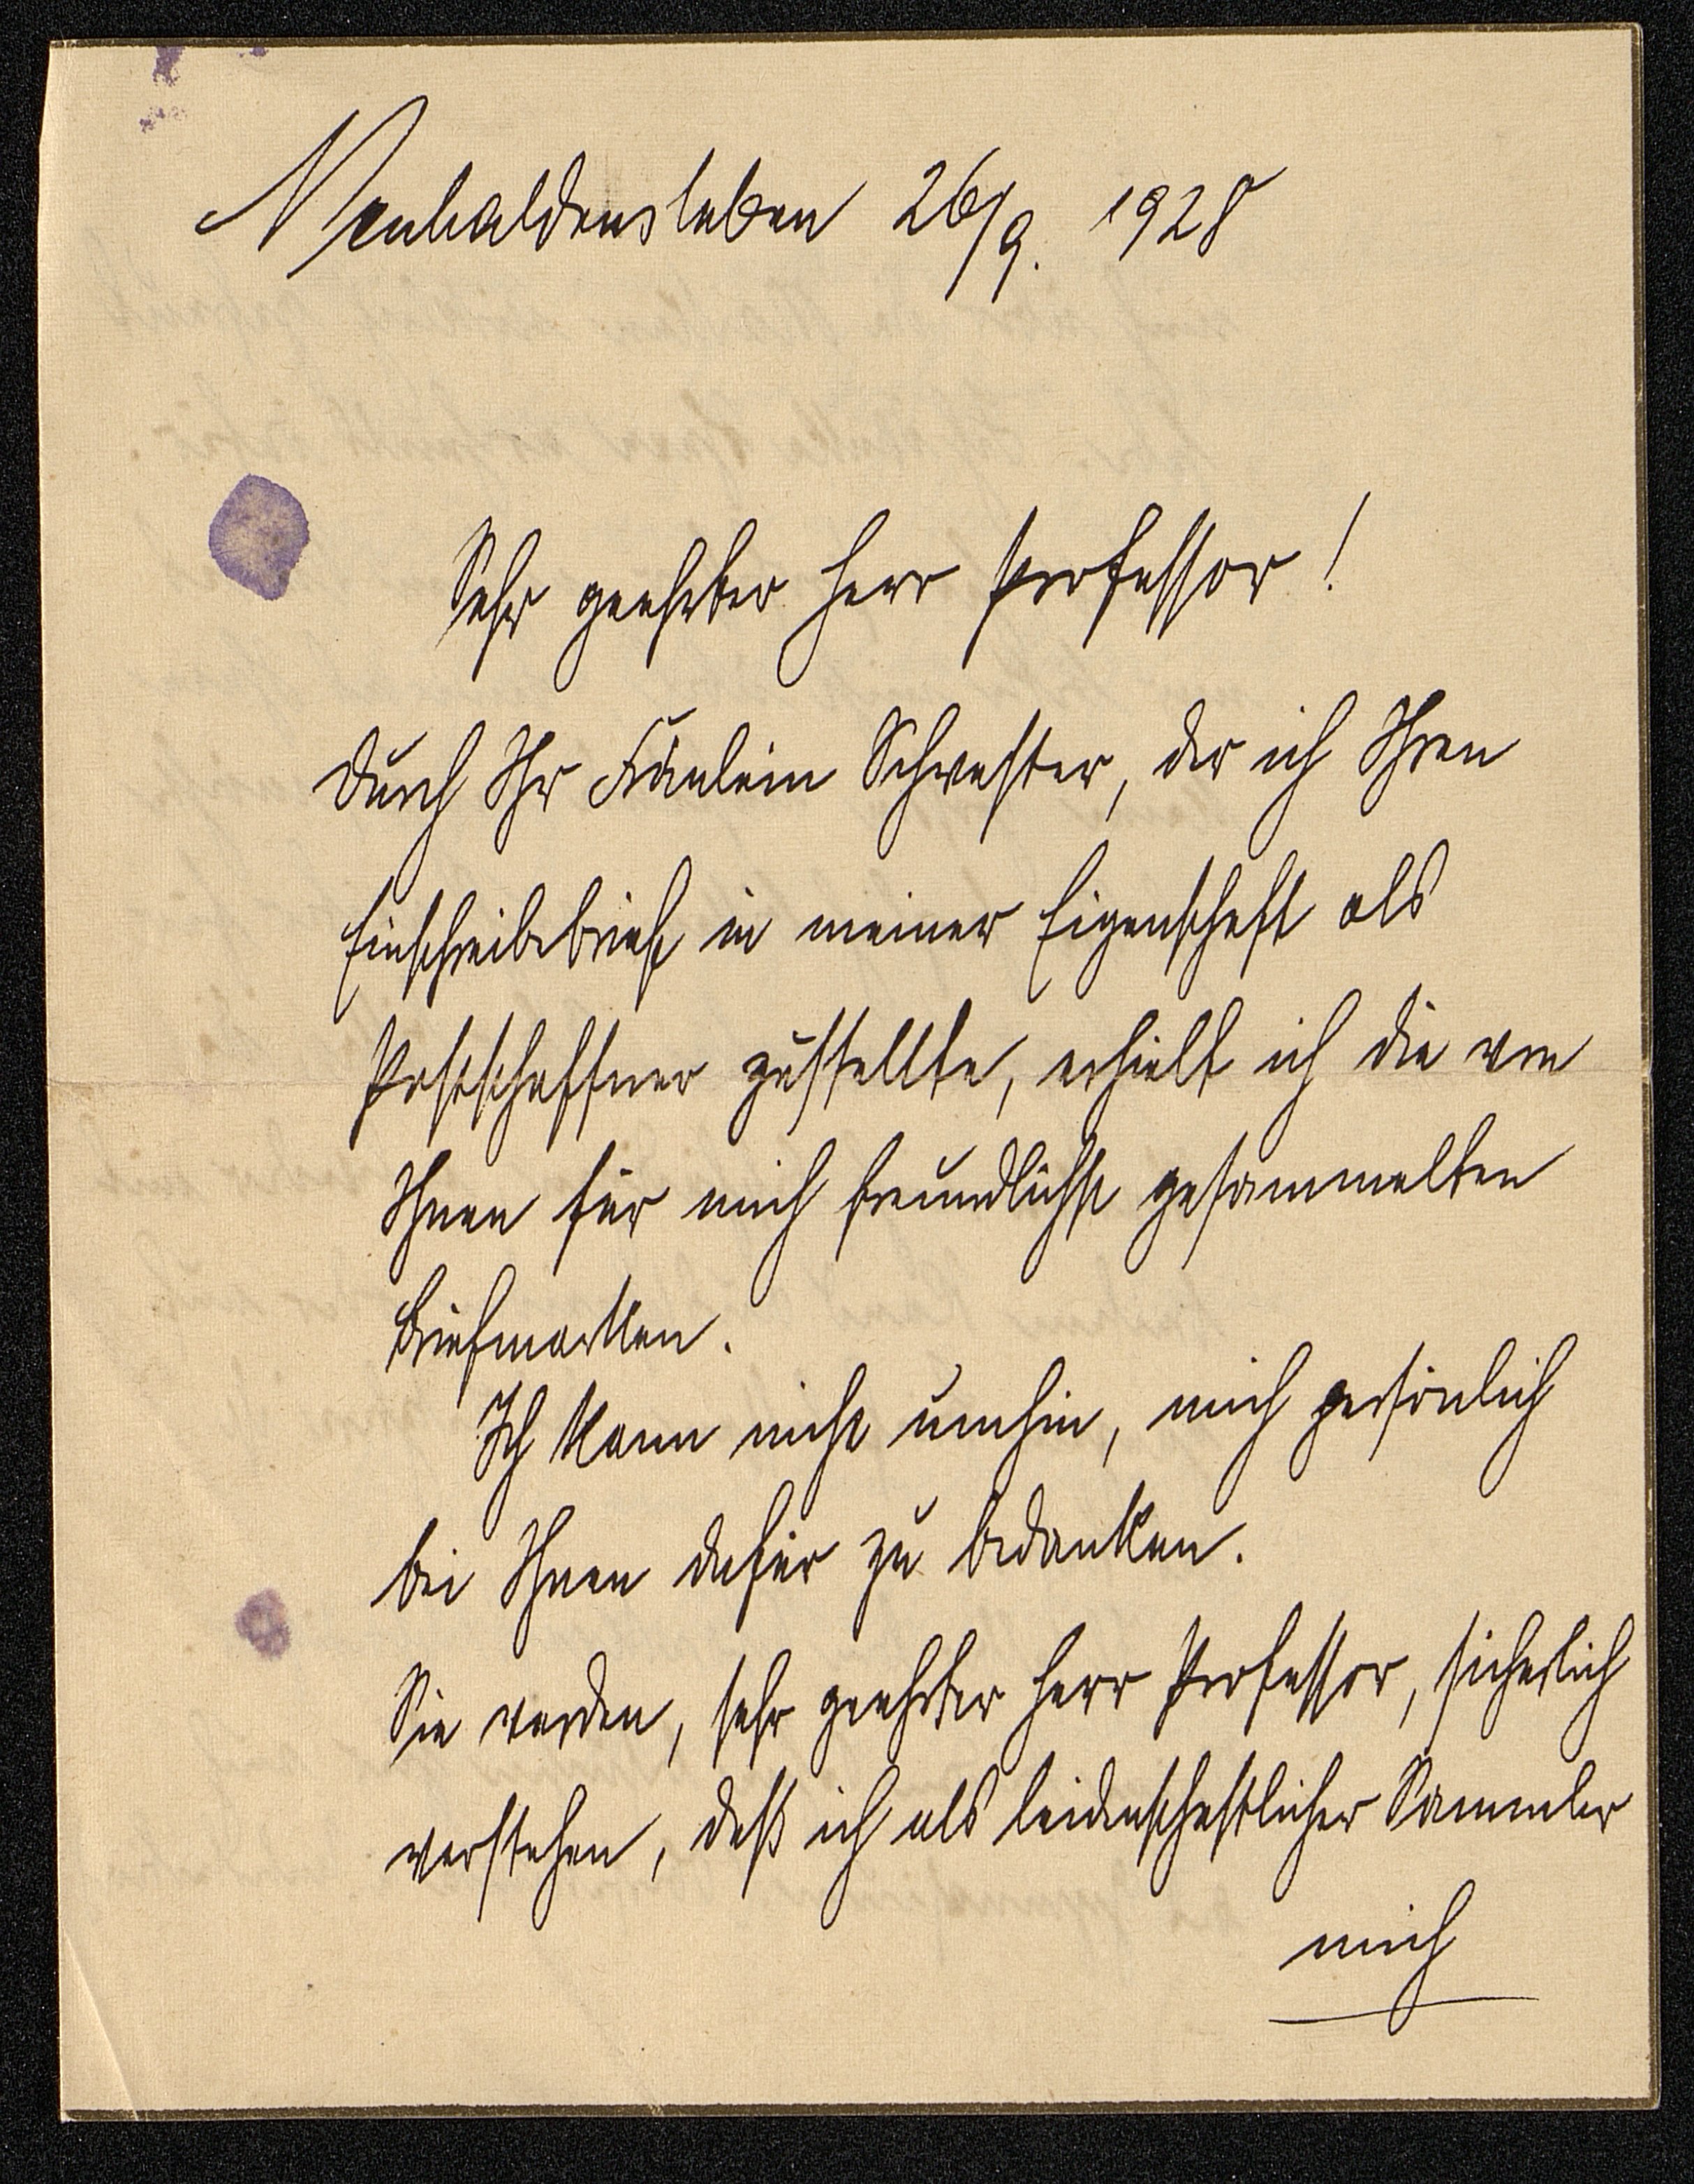 Neuhaldensleben 26/9. 1928
Sehr geehrter Herr Professor!
Durch Ihr Fräulein Schwester, der ich Ihren
Einschreibebrief in meiner Eigenschaft als
Postschaffner zustellte, erhielt ich die von
Ihnen für mich freundlichst gesammelten
Briefmarken.
Ich kann nicht umhin, mich persönlich
bei Ihnen dafür zu bedanken.
Sie werden, sehr geehrter Herr Professor, sicherlich
verstehen, daß ich als leidenschaftlicher Sammler
mich